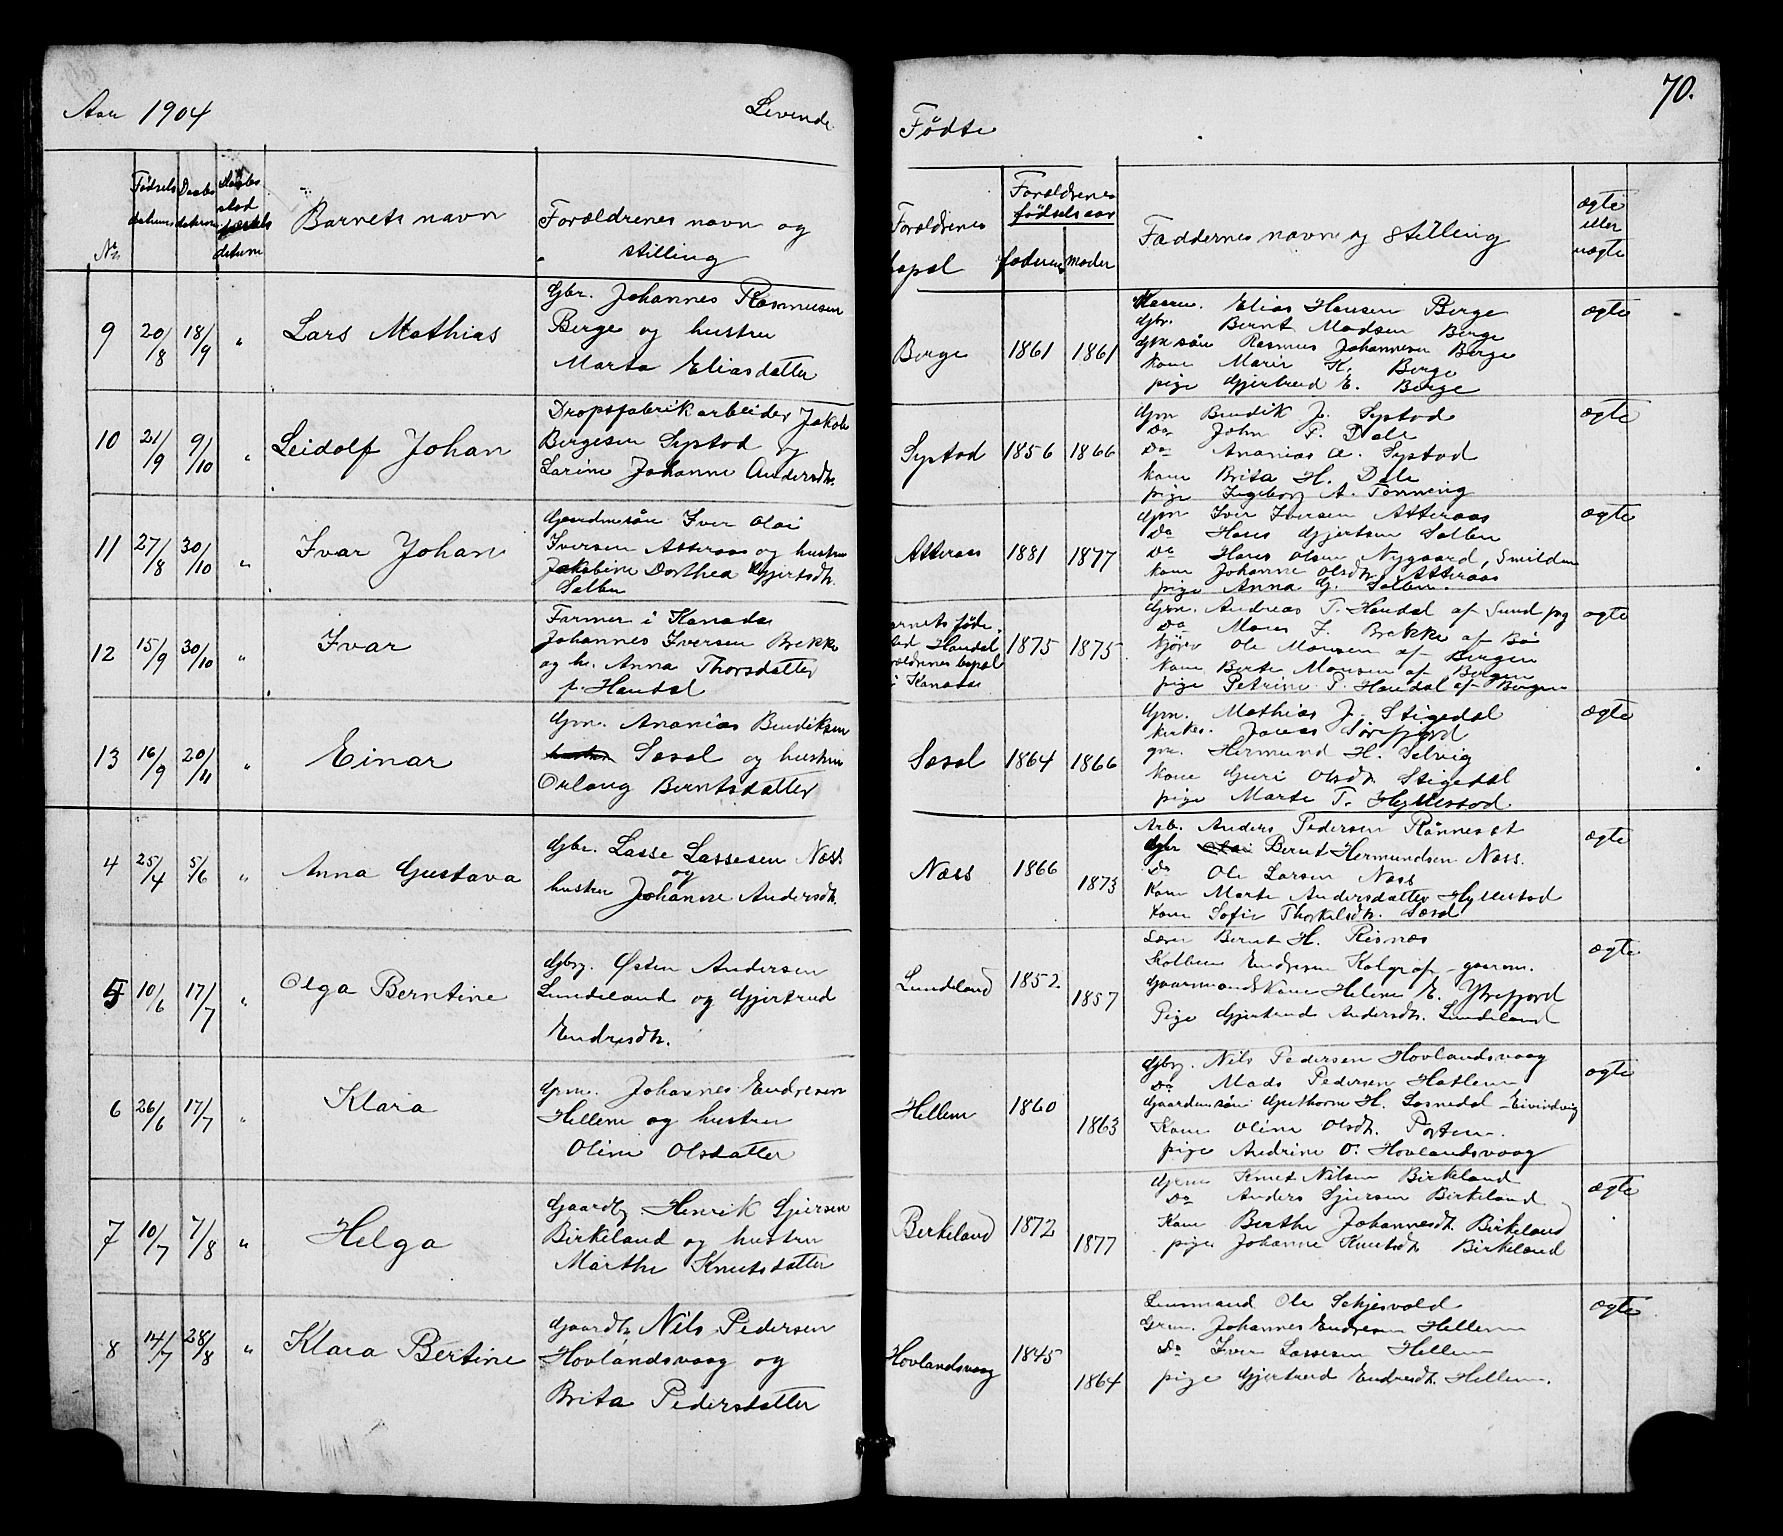 Aar 1904 Levende Fødte 70.
No. Fødsels datum Daabs datum Barnets navn Forældrenes navn og stilling Forældrenes bopæl Forældrenes fødselsaar faderen moder Faddernes navn og stilling ægte eller uægte
9 20/8 18/9 " Lars Mathias
Gbr. Johannes Rasmusen
Berge og hustru
Marta Eliasdatter
Berge 1861 1861
Elias Hansen Berge
Gbr. Bernt Madsen Berge
søn Rasmus Johannesen Berge
kone Marie H. Berge
pige Gjertrud E. Berge
ægte
10 21/9 9/10 " Leidolf Johan
Dropsfabrik arbeider Jakob
Bergesen Systad og
Larine Johanne Andersdtr.
Systad 1856 1866
Gjm Bendik J. Systad
Do John P. Dale
Do Ananias A. Systad
kone Brita H. Dale
pige Ingeborg A. Tønning
ægte
11 27/8 30/10 " Ivar Johan
Gaardmsøn Iver Olai
Iversen Atteraas og hustru
Jakobine Dorthea Gjertsdtr.
Salbu
Atteraas 1881 1877
Gjm Iver Iversen Atteraas
Do Hans Gjertsen Salbu
Do Hans Olsen Nygaard,
kone Johanne Olsdtr. Atteraas
pige Anna G. Salbu.
ægte
12 15/9 30/10 " Ivar
Farmer i Kanada
Johannes Iversen Brekke
og h. Anna Thorsdatter
f. Haudal
Haudal
bopæl
i Kanada
1875 1875
Gjm. Andreas T. Haudal af Sund
Do Mons I. Brekke af Bø
Ole Monsen af Bergen
kone Berte Monsen af Bergen
pige Petrine P. Haudal af Bergen
ægte
13 16/9 20/11 " Einar
Gjm. Ananias Bendiksen
Sæsol og hustru
Orlaug Berntsdatter
Sæsol 1864 1866
Gjm. Mathias J. Stigedal
Jonas Sørefjord
gm. Hermund H. Selvig
kone Guri Olsdtr. Stigedal
pige Marte T. Hyllestad
ægte
4 25/4 5/6 " Anna Gustava
Gbr. Lasse Lassesen Næss
og
hustru Johanne Andersdtr.
Næss 1866 1873
Arb. Anders Pedersen Rønneset
Gbr Bernt Hermundsen Næss.
Do Ole Larsen Næss
Kone Marte Andersdatter Hyllestad
kone Sofie Thorkelsdtr. Sæsol
ægte
5 10/6 17/7 " Olga Berntine
Gbrg. Østen Andersen
Lundeland og Gjertrud
Endresdtr.
Lundeland 1852 1857
Bernt H. Risnes
Kolben Endresen Kolgrof - gaarm.
Gaarmandskone Helene E. Ytrefjord
Pige Gjertrud Andersdtr. Lundeland
ægte
6 26/6 17/7 " Klara
Gjm. Johannes Endresen
Hellem og hustru
Oline Olsdatter
Hellem 1860 1863
Gbrg. Nils Pedersen Hovlandsvaag
Do Mads Pedersen Hatlem
Gaardm søn Guthorm H. Losnedal - Eivindvig
Kone Oline Olsdtr. Porten.
pige Andrine O. Hovlandsvaag
ægte
7 10/7 7/8 " Helga
Gaardb. Henrik Sjursen
Birkeland og hustru
Marthe Knutsdatter
Birkeland 1872 1877
Gjm Knut Nilsen Birkeland
Do Anders Sjursen Birkeland
Kone Berthe Johannesdt. Birkeland
pige Johanne Knutsdt. Birkeland
ægte
8 14/7 28/8 " Klara Bertine
Gaardb. Nils Pedersen
Hovlandsvaag og
Brita Pedersdatter
Hovlandsvaag 1845 1864
Lensmand Ole Schjesvold
Grm. Johannes Endresen Hellem
Do Iver Lassesen Hellem
pige Gjertrud Endresdt. Hellem.
ægte